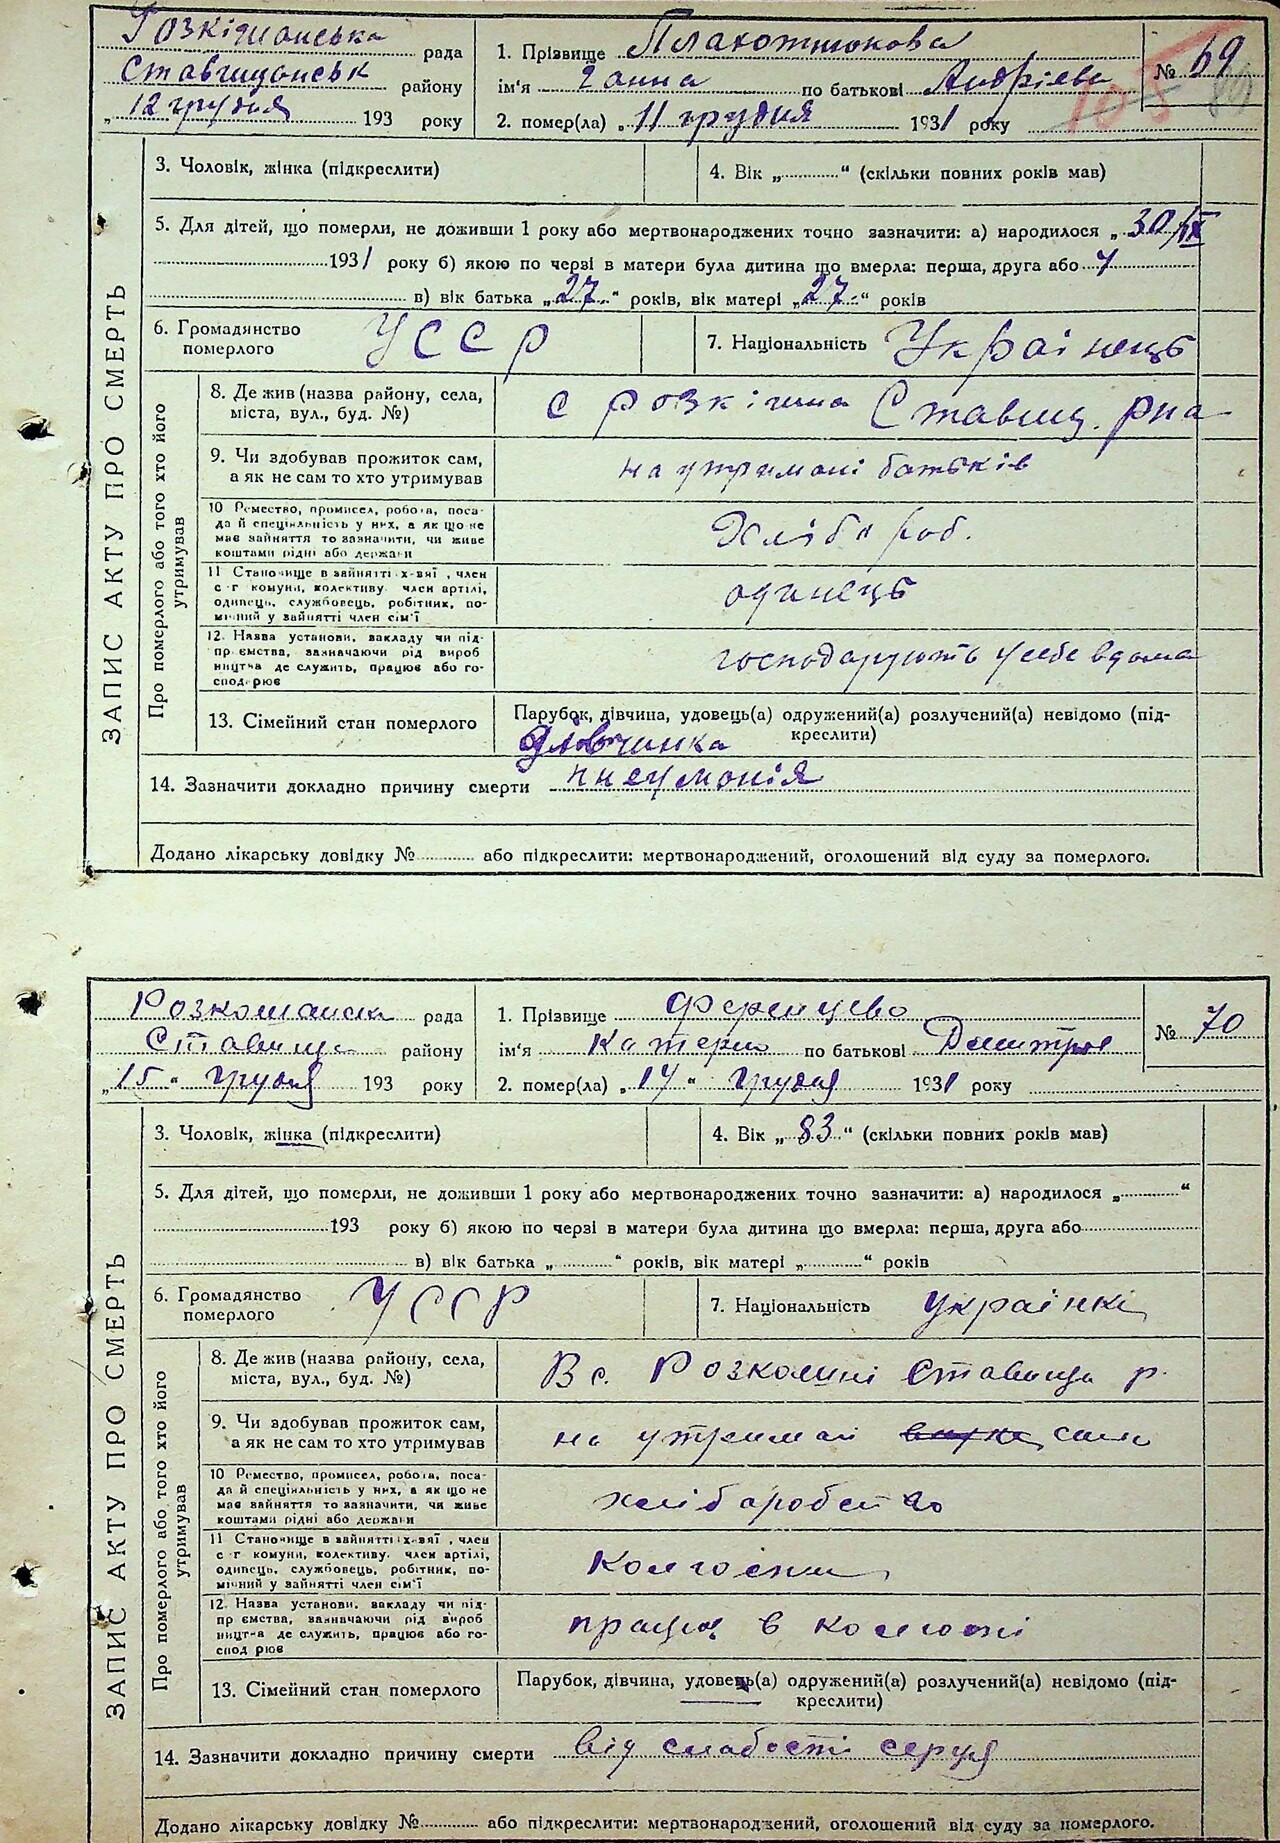 Розкішанська рада
Ставищанськ району
„ 12 грудня 193 року
1. Прізвище Плахотнюкова
ім'я Ганна по батькові Андріев
2. помер(ла) „ 11 грудня 1931 року
№ 69
105
3. Чоловік, жінка (підкреслити)
4. Вік „ “ (скільки повних років мав)
5. Для дітей, що померли, не доживши 1 року або мертвонароджених точно зазначити: а) народилося „ 30/IX
1931 року б) якою по черзі в матери була дитина що вмерла: перша, друга або 4
в) вік батька „ 27 “ років, вік матері „ 27 “ років
6. Громадянство померлого УССР
7. Національність Українець
ЗАПИС АКТУ ПРО СМЕРТЬ
Про померлого або того хто його утримував
8. Де жив (назва району, села,
міста, вул., буд. №)
с Розкішна Ставищ. рна
9. Чи здобував прожиток сам,
а як не сам то хто утримував
на утримані батьків
10 Ремество, промисел, робота, поса-
да й спеціяльність у них, а як що не
має зайняття то зазначити, чи живе
коштами рідні або держави
Хлібороб.
11 Становище в зайнятті х-вяї, член
с-г комуни, колективу. член артілі,
одинець, службовець, робітник, по-
мічний у зайнятті член сім'ї
одинець
12. Назва установи, закладу чи під-
пр ємства, зазначаючи рід вироб
ництва де служить, працює або го-
спод рює
господарують у себе вдома
13. Сімейний стан померлого
Парубок, дівчина, удовець(а) одружений(а) розлучений(а) невідомо (під-
креслити)
дівчинка
14. Зазначити докладно причину смерти пнеумонія
Додано лікарську довідку № або підкреслити: мертвонароджений, оголошений від суду за померлого.
Розкошанська рада
Ставище району
„ 15 “ грудня 193 року
1. Прізвище Ференцево
ім'я Катери по батькові Дмитров
2. помер(ла) „ 14 “ грудня 1931 року
№ 70
3. Чоловік, жінка (підкреслити)
4. Вік „ 83 “ (скільки повних років мав)
5. Для дітей, що померли, не доживши 1 року або мертвонароджених точно зазначити: а) народилося „ “
193 року б) якою по черзі в матери була дитина що вмерла: перша, друга або
в) вік батька „ “ років, вік матері „ “ років
6. Громадянство померлого УССР
7. Національність Українкі
ЗАПИС АКТУ ПРО СМЕРТЬ
Про померлого або того хто його утримував
8. Де жив (назва району, села,
міста, вул., буд. №)
В с. Розкошні Ставище р.
9. Чи здобував прожиток сам,
а як не сам то хто утримував
на утримані сина
10 Ремество, промисел, робота, поса-
да й спеціяльність у них, а як що не
має зайняття то зазначити, чи живе
коштами рідні або держави
хліборобство
11 Становище в зайнятті х-вяї, член
с-г комуни, колективу. член артілі,
одинець, службовець, робітник, по-
мічний у зайнятті член сім'ї
12. Назва установи, закладу чи під-
пр ємства, зазначаючи рід вироб
ництва де служить, працює або го-
спод рює
працює в колгоспі
13. Сімейний стан померлого
Парубок, дівчина, удовець(а) одружений(а) розлучений(а) невідомо (під-
креслити)
14. Зазначити докладно причину смерти від слабості серця
Додано лікарську довідку № або підкреслити: мертвонароджений, оголошений від суду за померлого.